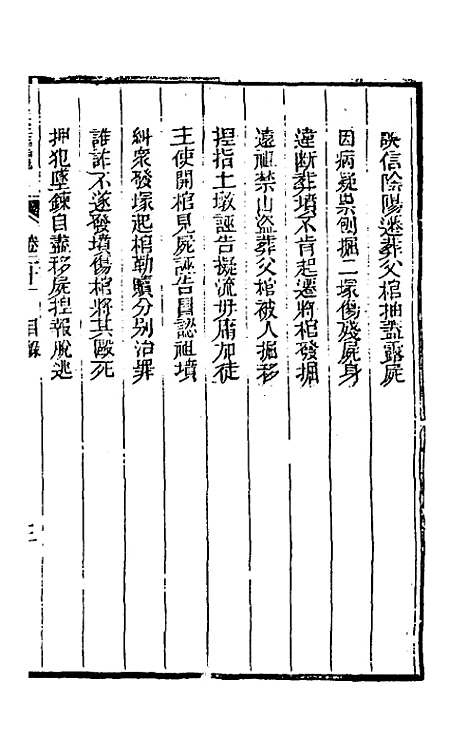 誤信陰陽遷葬父棺抽蓋露屍
因病疑祟刨掘二塚傷殘屍身
違斷葬墳不肯起遷將棺發掘
遠祖禁山盜葬父棺被人掘移
捏指土墩誣告擬流毋庸加徒
主使開棺見屍誣告冒認祖墳
糾衆發塚起棺勒贖分别治罪
誰詐不遂發墳傷棺將其毆死
押犯墜鍊自盡移屍捏報脫逃
卷二十一 目錄
三